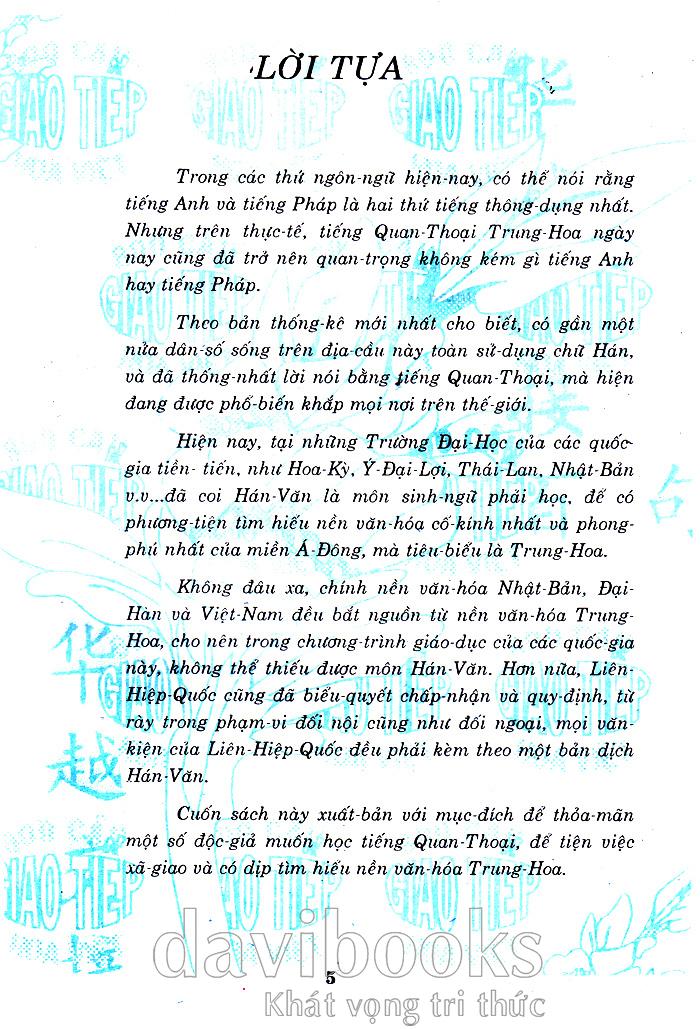 LỜI TỰA
Trong các thứ ngôn-ngữ hiện-nay, có thể nói rằng
tiếng Anh và tiếng Pháp là hai thứ tiếng thông-dụng nhất.
Nhưng trên thực-tế, tiếng Quan-Thoại Trung-Hoa ngày
nay cũng đã trở nên quan-trọng không kém gì tiếng Anh
hay tiếng Pháp.
Theo bản thống-kê mới nhất cho biết, có gần một
nửa dân-số sống trên địa-cầu này toàn sử-dụng chữ Hán,
và đã thống-nhất lời nói bằng tiếng Quan-Thoại, mà hiện
đang được phổ-biến khắp mọi nơi trên thế-giới.
Hiện nay, tại những Trường Đại-Học của các quốc-
gia tiền- tiến, như Hoa-Kỳ, Ý-Đại-Lợi, Thái-Lan, Nhật-Bản
v.v...đã coi Hán-Văn là môn sinh-ngữ phải học, để có
phương-tiện tìm hiểu nền văn-hóa cổ-kính nhất và phong-
phú nhất của miền Á-Đông, mà tiêu-biểu là Trung-Hoa.
Không đâu xa, chính nền văn-hóa Nhật-Bản, Đại-
Hàn và Việt-Nam đều bắt nguồn từ nền văn-hóa Trung-
Hoa, cho nên trong chương-trình giáo-dục của các quốc-gia
này, không thể thiếu được môn Hán-Văn. Hơn nữa, Liên-
Hiệp-Quốc cũng đã biểu-quyết chấp-nhận và quy-định, từ
rày trong phạm-vi đối nội cũng như đối ngoại, mọi văn-
kiện của Liên-Hiệp-Quốc đều phải kèm theo một bản dịch
Hán-Văn.
Cuốn sách này xuất-bản với mục-đích để thỏa-mãn
một số độc-giả muốn học tiếng Quan-Thoại, để tiện việc
xã-giao và có dịp tìm hiểu nền văn-hóa Trung-Hoa.
GIAO TIẾP
GIAO TIẾP
GIAO TIẾP
华
越
davibooks
5
Khát vọng tri thức